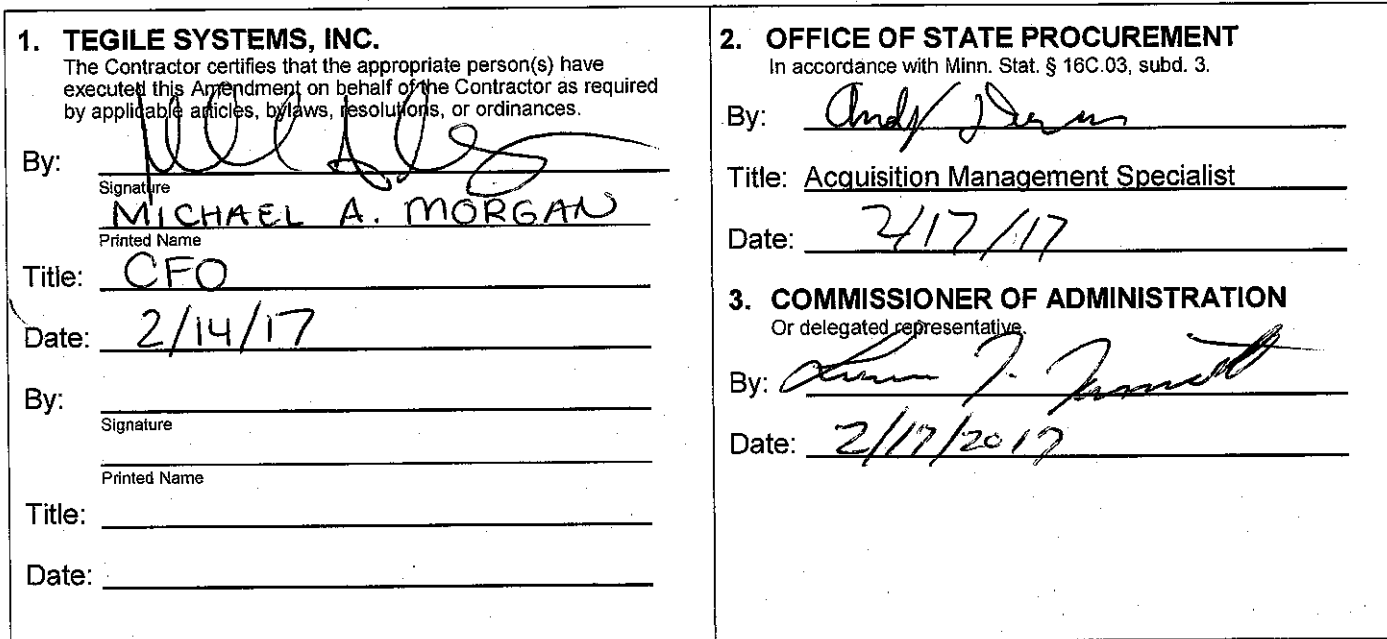 1. TEGILE SYSTEMS, INC.
The Contractor certifies that the appropriate person(s) have
executed this Amendment on behalf of the Contractor as required
by applicable articles, bylaws, resolutions, or ordinances.
By:
Signature
MICHAEL A. MORGAN
Printed Name
Title: CFO
Date: 2/14/17
By:
Signature
Printed Name
Title:
Date:
2. OFFICE OF STATE PROCUREMENT
In accordance with Minn. Stat. § 16C.03, subd. 3.
By: Andy
Title: Acquisition Management Specialist
Date: 2/17/17
3. COMMISSIONER OF ADMINISTRATION
Or delegated representative.
By:
Date: 2/17/2017